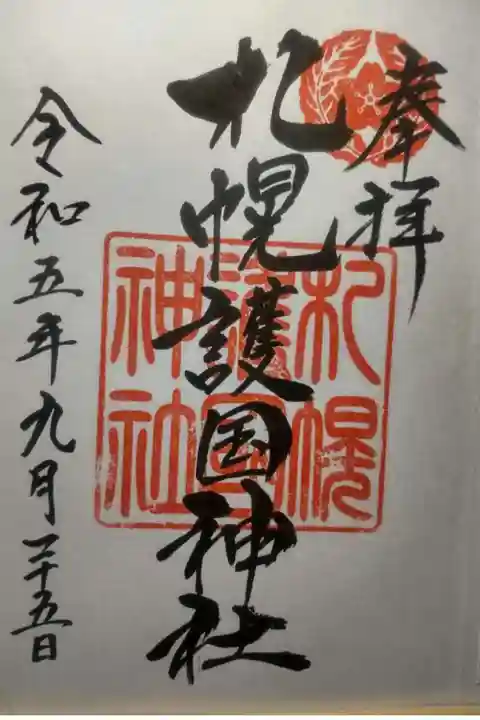 奉拝
札幌護国神社
札幌
護國
神社
令和五年九月二十五日